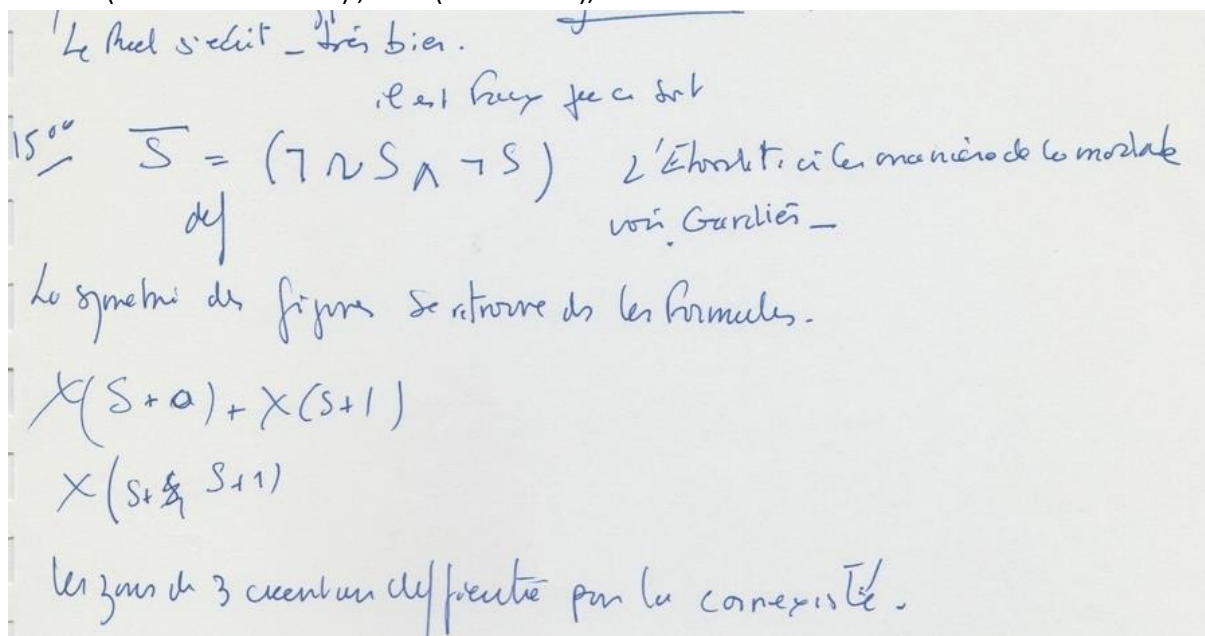 Le Réel s'écrit _ très bien.
il est faux que ce soit
15°° S̅ = (¬ ∼ S ∧ ¬ S) L'Etourdit. ici les manière de la modale
def voir Gardiés _
La symetri des figures se retrouve ds les formules.
X(S + a) + X(S + 1)
X(S + S + 1)
les zones de 3 créent un difficulté par la connexité.